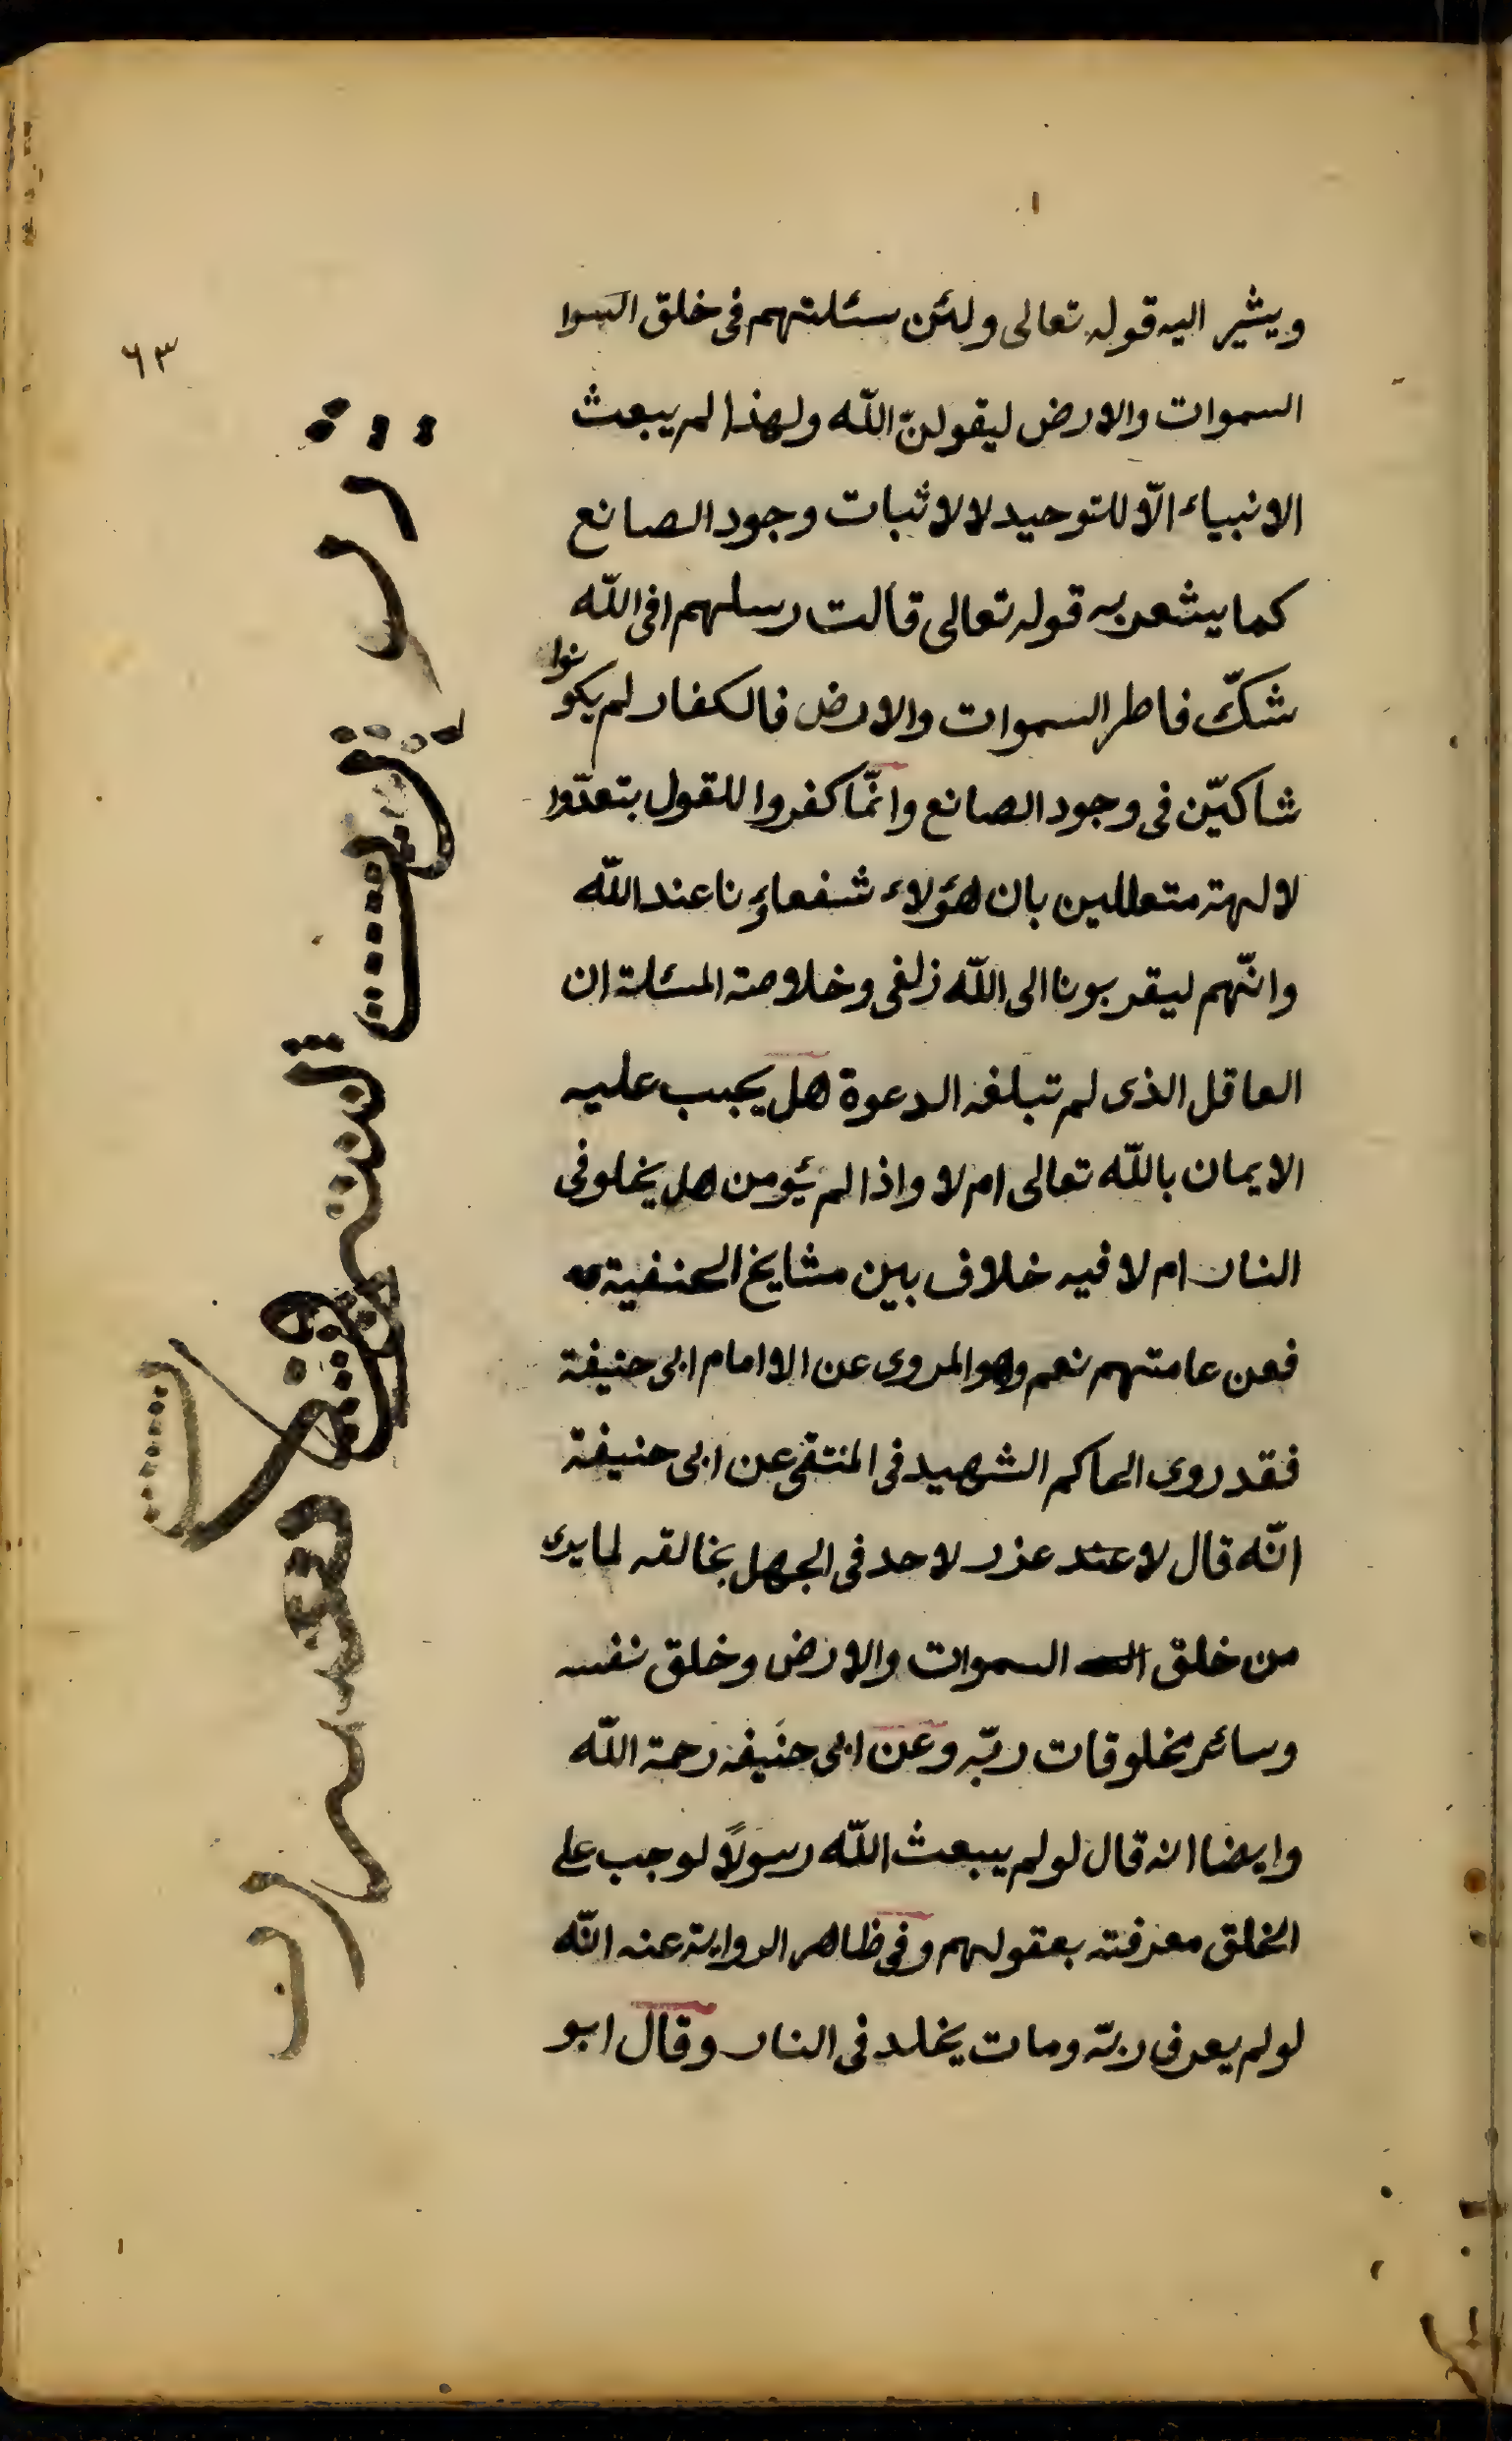 ٦٣
ويشير اليه قوله تعالى ولئن سئلتهم فى خلق السوا
السموات والارض ليقولنّ اللّه ولهذا لم يبعث
الانبياء الّا للتوحيد لا لاثبات وجود الصانع
كما يشعر به قوله تعالى قالت رسلهم افى اللّه
شكّ فاطر السموات والارض فالكفار لم يكونوا
شاكيّن فى وجود الصانع وانّما كفروا للقول بتعدّوا
لالهة متعللين بان هؤلاء شفعاؤنا عند اللّه
وانّهم ليقربونا الى اللّه زلفى وخلاصة المسئلة ان
العاقل الذى لم تبلغه الدعوة هل يجب عليه
الايمان باللّه تعالى ام لا واذا لم يؤمن هل يخلو فى
النار ام لا فيه خلاف بين مشايخ الحنفية
فعن عامتهم نعم وهو المروى عن الامام ابى حنيفة
فقد روى الحاكم الشهيد فى المنتقى عن ابى حنيفة
انّه قال لا عند عذر لاحد فى الجهل بخالقه لما يرى
من خلق السموات والارض وخلق نفسه
وسائر مخلوقات ربّه وعن ابى حنيفه رحمة اللّه
وايضا انه قال لو لم يبعث اللّه رسولاً لوجب على
الخلق معرفته بعقولهم وفى ظاهر الرواية عنه انّه
لو لم يعرف ربّه ومات يخلد فى النار وقال ابو